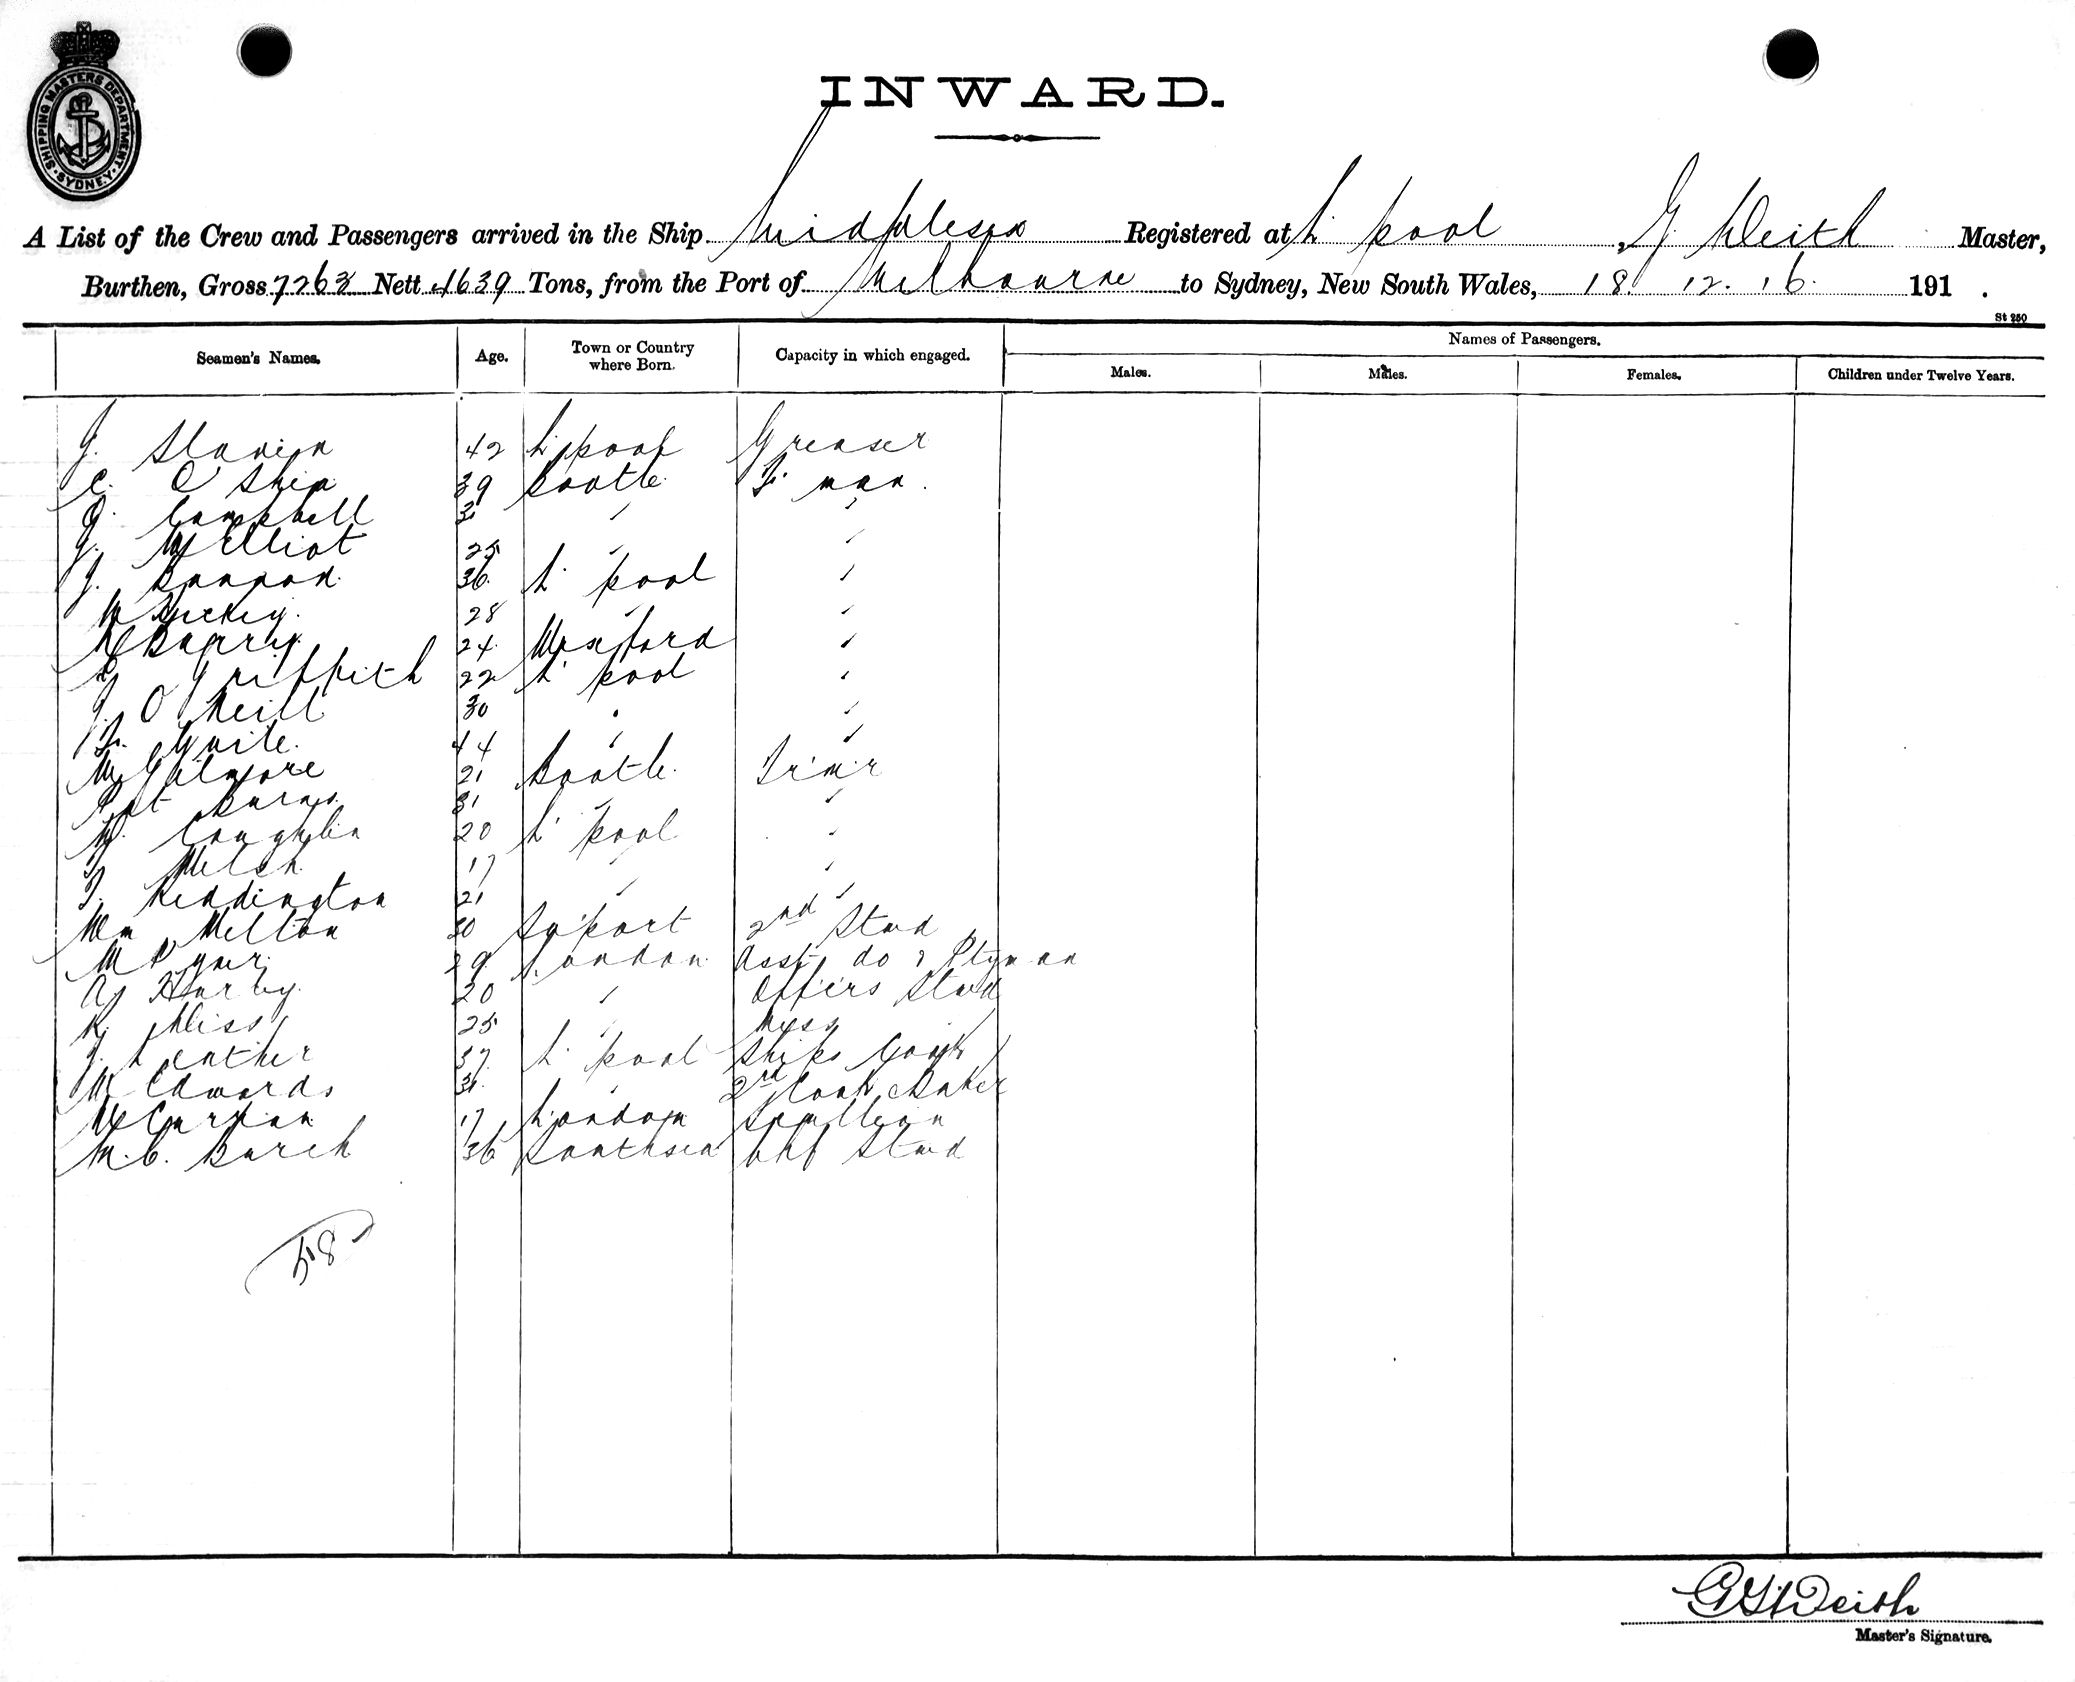 SHIPPING MASTERS DEPARTMENT
SYDNEY
INWARD.
A List of the Crew and Passengers arrived in the Ship Middlesex Registered at L'pool G. Deith Master,
Burthen, Gross 7263 Nett 4639 Tons, from the Port of Melbourne to Sydney, New South Wales, 18. 12. 16. 191 .
St 250
Seamen's Names. Age. Town or Country where Born. Capacity in which engaged. Names of Passengers.
Males. Males. Females. Children under Twelve Years.
J. Slavin 42 L'pool Greaser
C. O'Shea 39 Bootle F'man.
Campbell 31 " "
J. McElliot 25 " "
J. Bannon 36 L'pool "
W Hickey. 28 " "
Barry. 24 Wexford "
Griffith 22 L'pool "
J. O'Neill 30 " "
44 " "
Gilmore 21 Bootle. Trim'r
Pat Burns 31 " "
Coughlin 20 L'pool "
Welsh 17 " "
T. Reddington 21 " "
Wm Melton 30 So'port 2nd Stwd
29 London. Asst do & Ptyman
A Harby. 20 " Officers Stwd
Bliss 25 " Mess "
J. Leather 37 L'pool Ships Cook
W Edwards 31. " 2nd Cook Baker
17 London Scullion
W. C. Burch 36 Southsea Chf Stwd
58
G H Deith
Master's Signature.